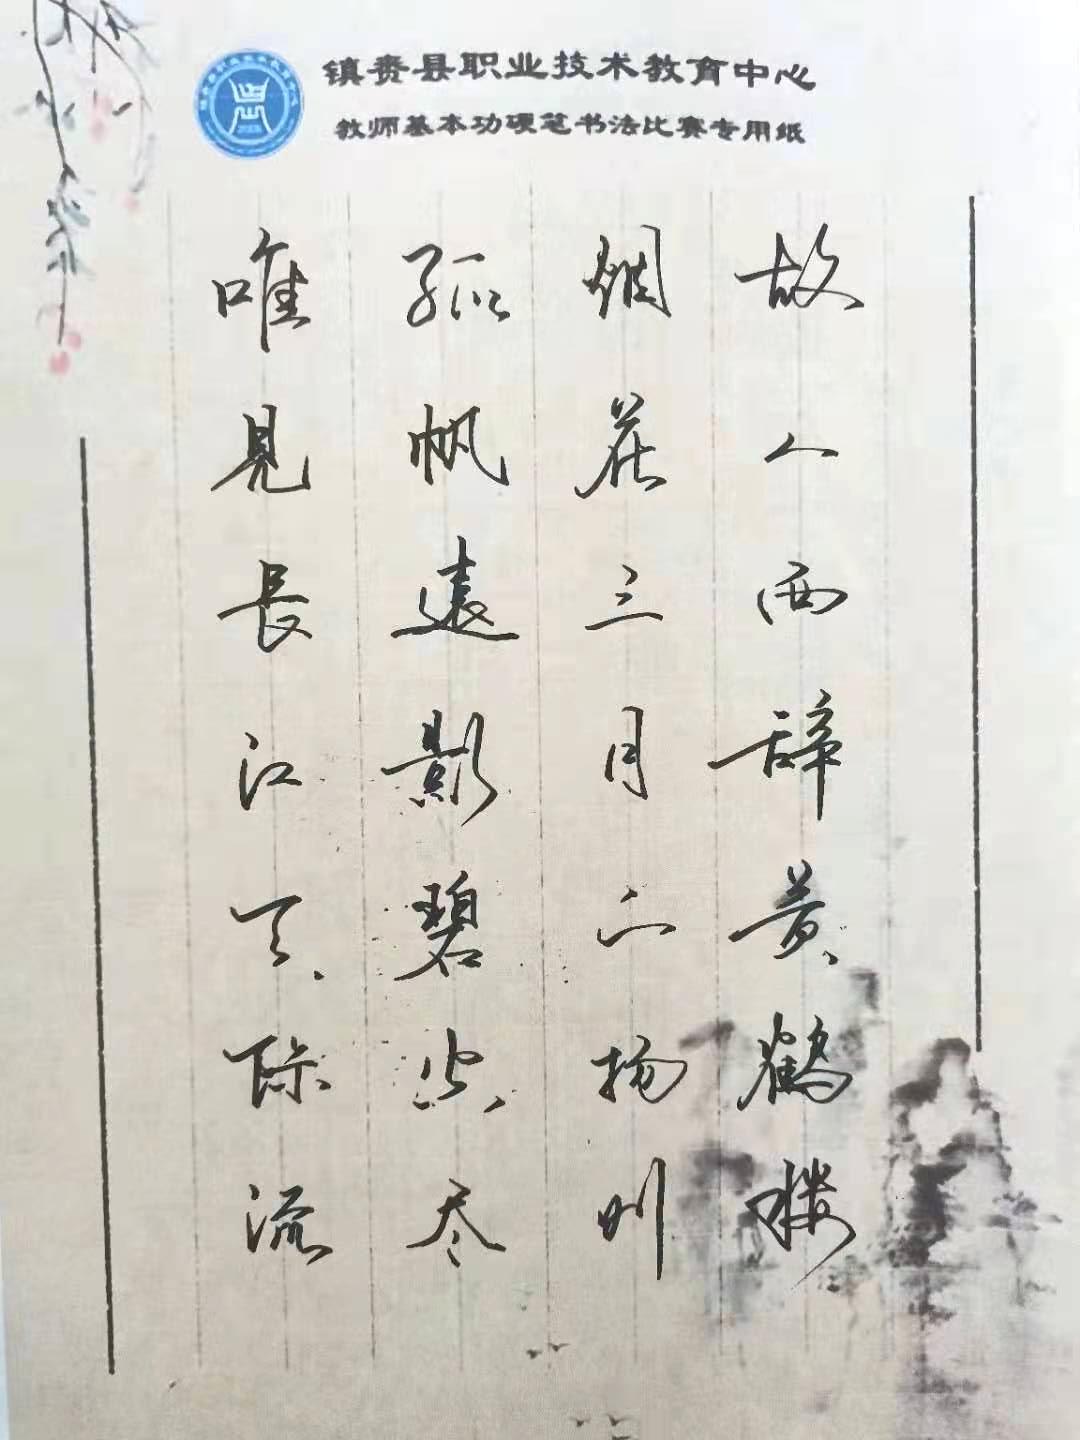 镇赉县职业技术教育中心
教师基本功硬笔书法比赛专用纸
故人西辞黄鹤楼
烟花三月下扬州
孤帆遠影碧空尽
唯見長江天际流